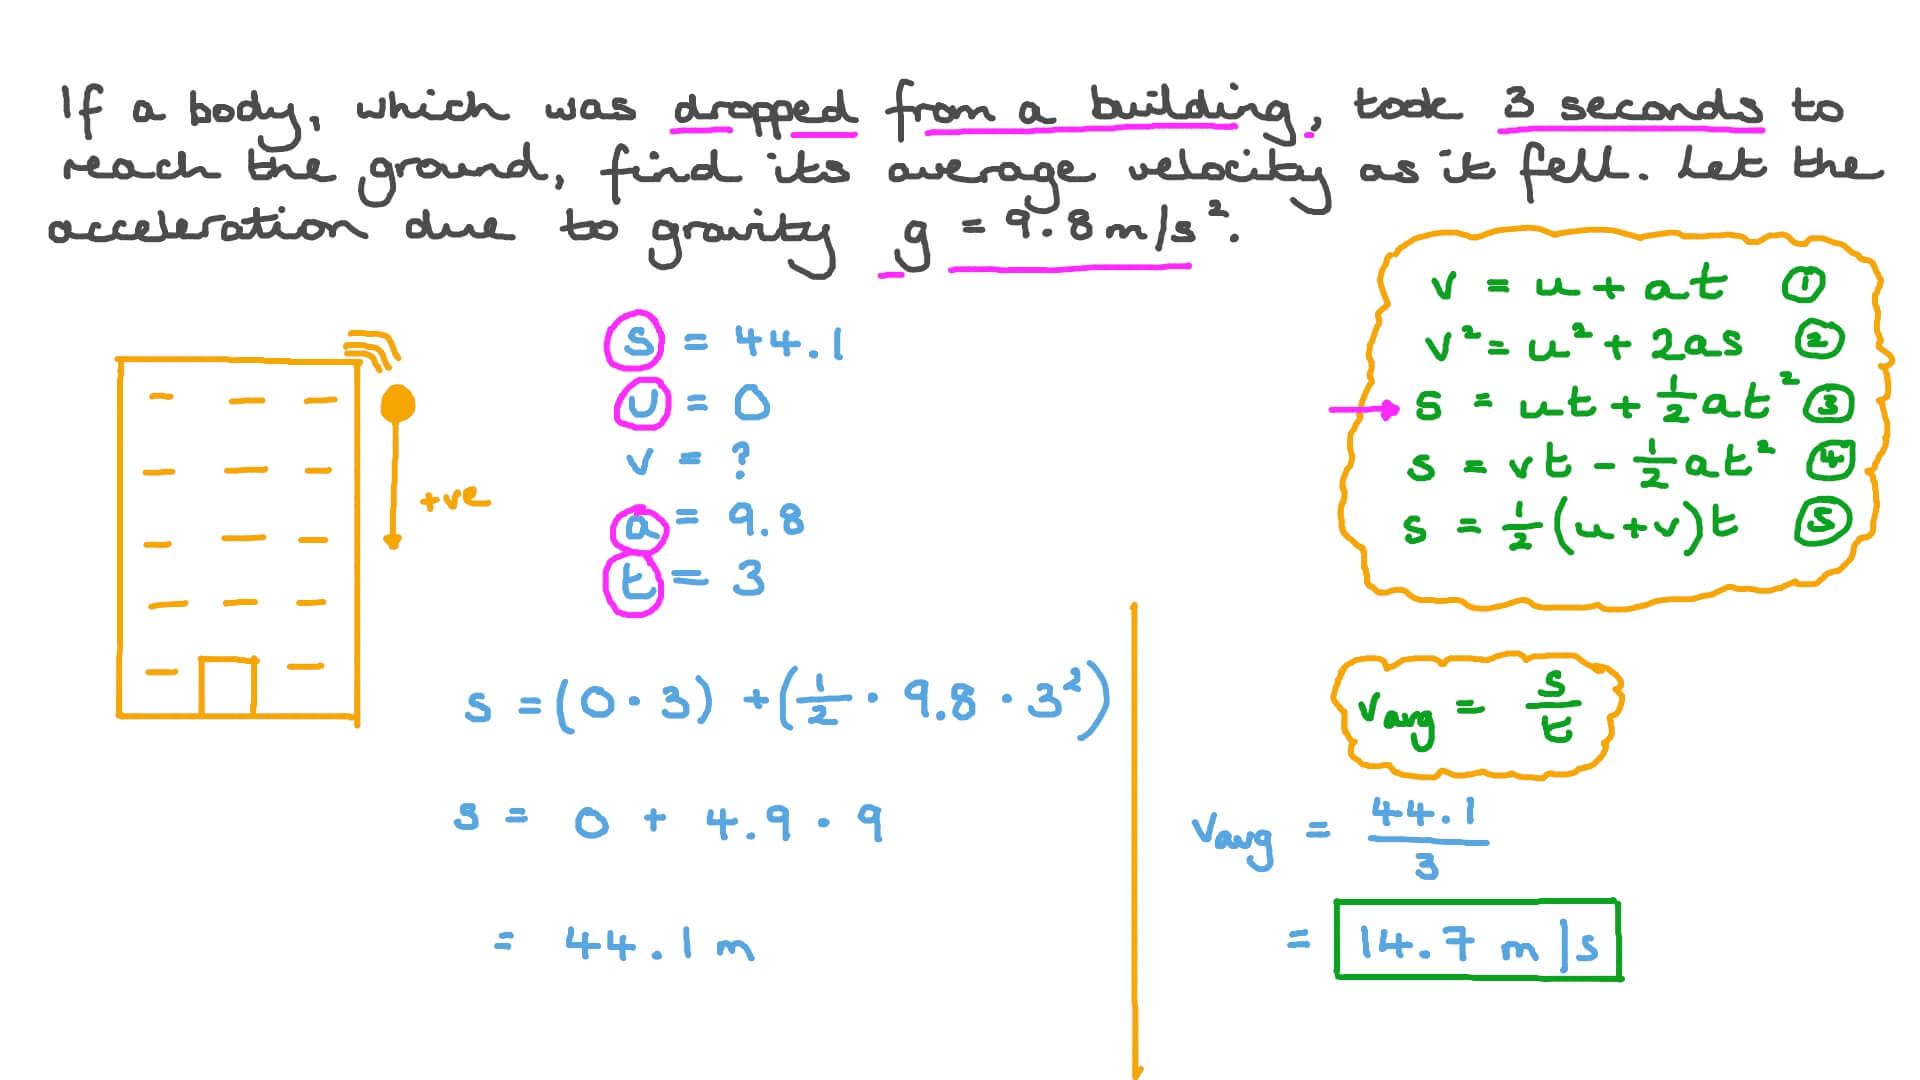 If a body, which was dropped from a building, took 3 seconds to
reach the ground, find its average velocity as it fell. Let the
acceleration due to gravity g = 9.8 m/s².
+ve
s = 44.1
u = 0
v = ?
a = 9.8
t = 3
v = u + at ①
v² = u² + 2as ②
s = ut + ½at² ③
s = vt - ½at² ④
s = ½(u+v)t ⑤
s = (0 · 3) + (½ · 9.8 · 3²)
s = 0 + 4.9 · 9
= 44.1 m
v_avg = s/t
v_avg = 44.1/3
= 14.7 m/s